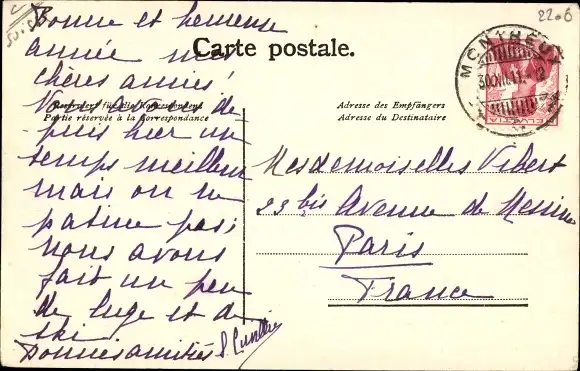 2206
Bonne et heureuse
année mes
chères amies!
Nous avons de-
puis hier un
temps meilleur
mais on ne
patine pas;
nous avons
fait un peu
de luge et de
ski
Bonnes amitiés
Carte postale.
Reserviert für die Korrespondenz
Partie réservée à la Correspondance
Adresse des Empfängers
Adresse du Destinataire
MONTREUX
HELVETIA
Mesdemoiselles Vibert
23 bis Avenue de Messine
Paris
France